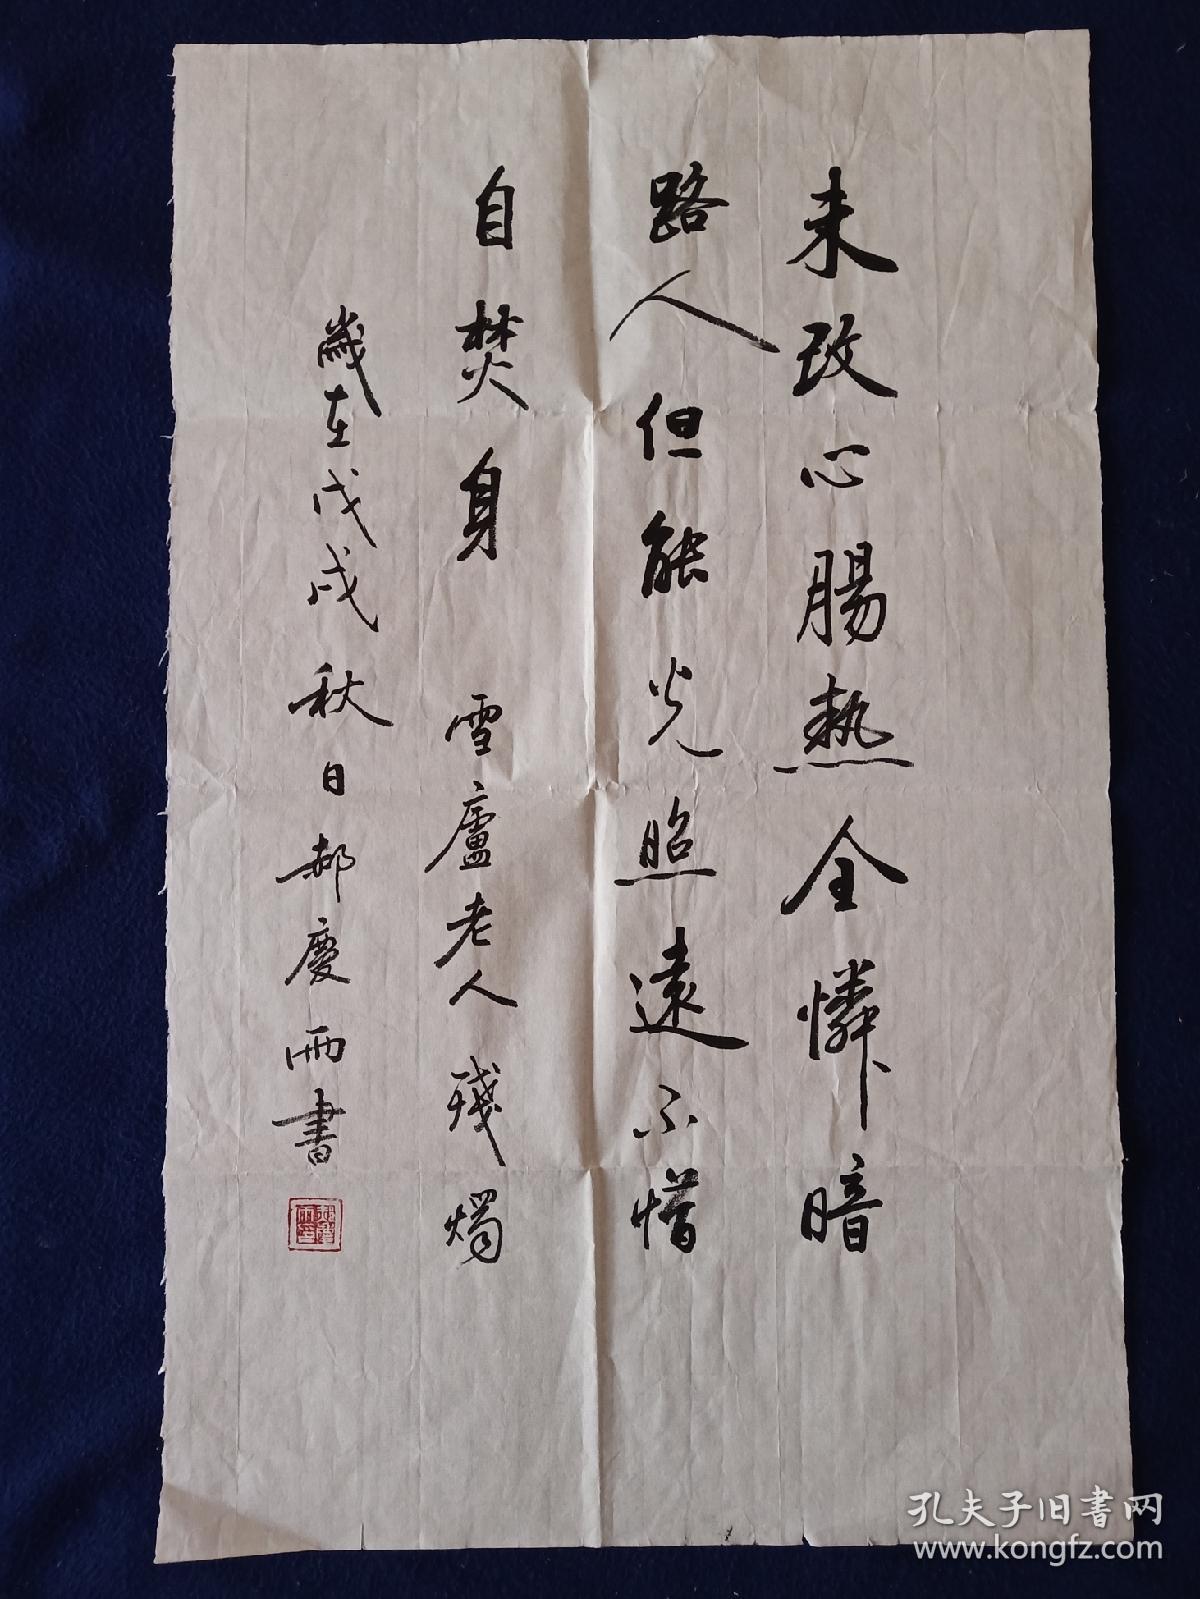 未改心腸熱全憐暗
路人但能光照遠不惜
自焚身 雪廬老人殘燭
歲在戊戌秋日郝慶雨書
孔夫子旧书网
www.kongfz.com